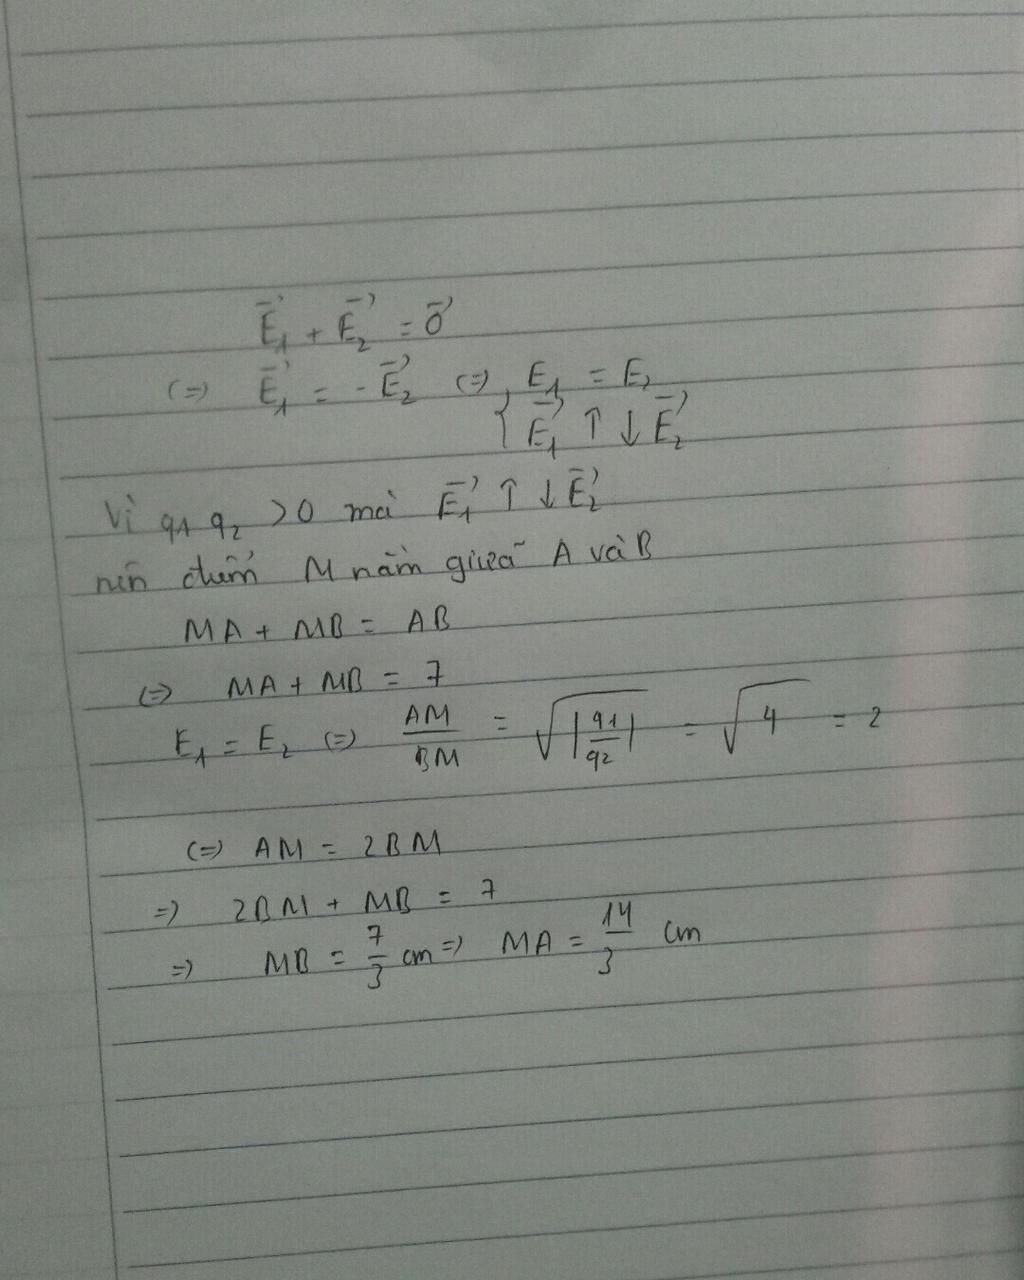 E⃗₁ + E⃗₂ = 0⃗
(=) E⃗₁ = - E⃗₂ (=) { E₁ = E₂
E⃗₁ ↑↓ E⃗₂
Vì q₁ q₂ >0 mà E⃗₁ ↑↓ E⃗₂
nên điểm M nằm giữa A và B
MA + MB = AB
(=) MA + MB = 7
E₁ = E₂ (=) AM/BM = √|q₁/q₂| = √4 = 2
(=) AM = 2BM
=) 2BM + MB = 7
=) MB = 7/3 cm =) MA = 14/3 cm